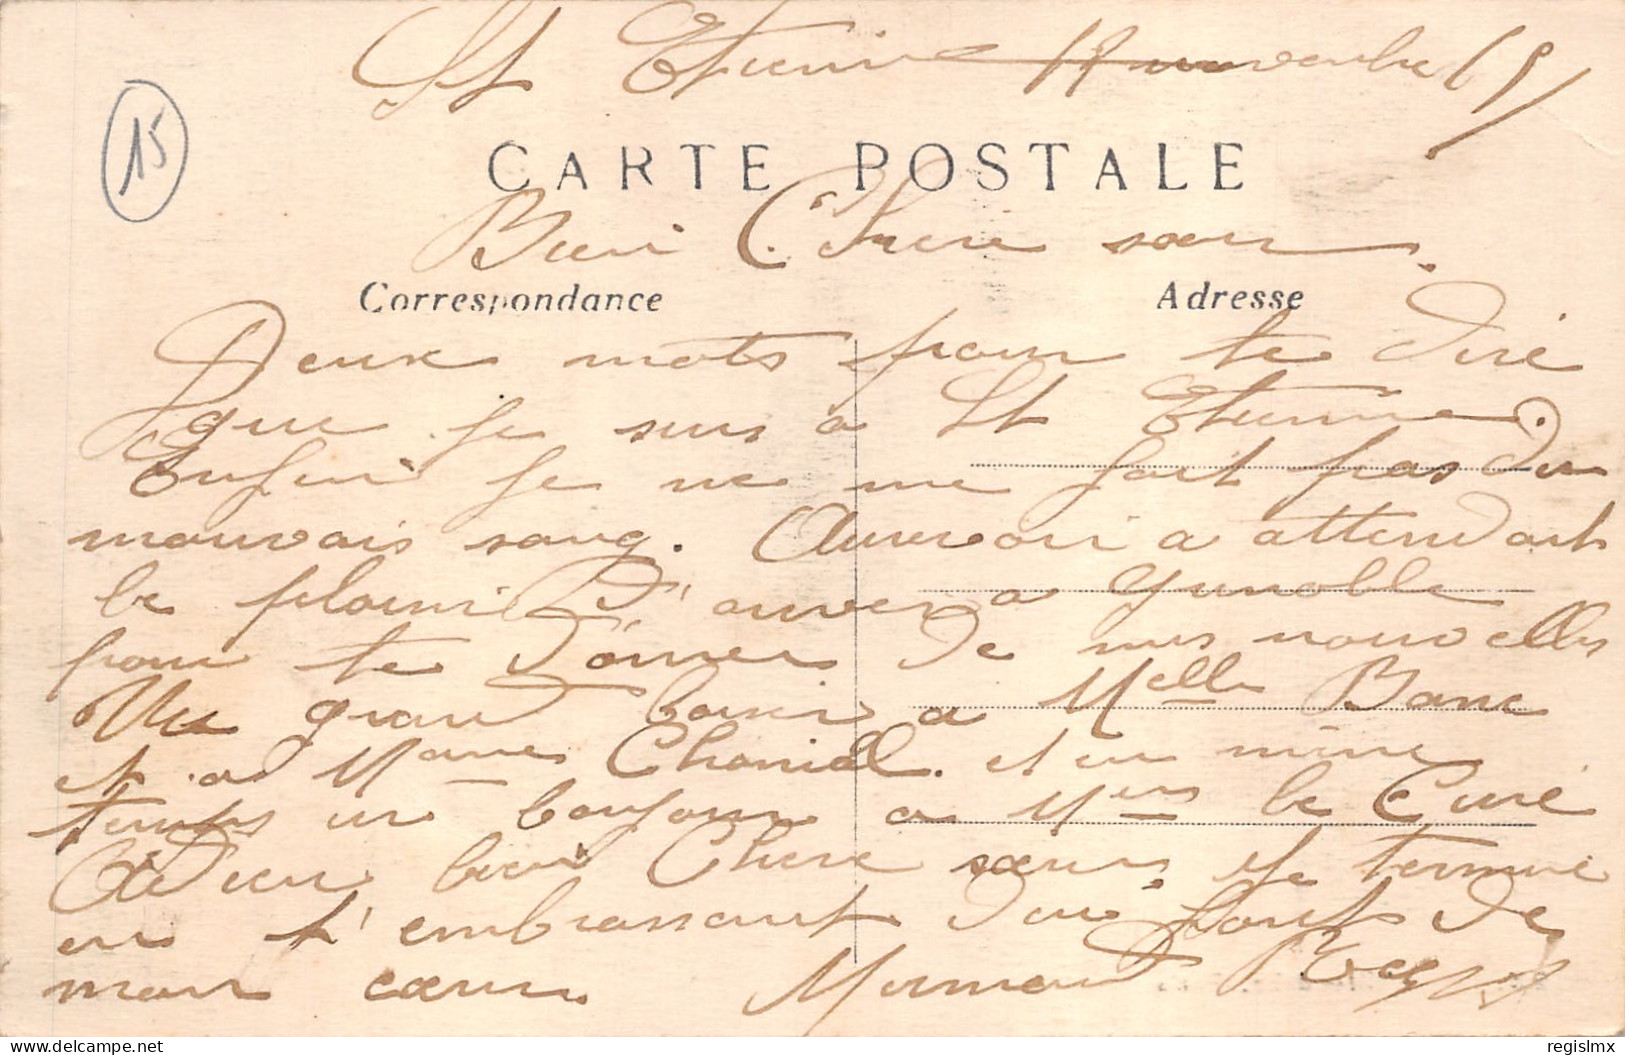 St Etienne 19 novembre 15
15
CARTE POSTALE
Bien Chere sœur
Correspondance
Adresse
Deux mots pour te dire
que je suis a St Etienne.
Enfin je ne me fait pas du
mauvais sang. Aurevoir a attendant
le plaisir d'arriver a Grenoble
pour te donner de mes nouvelles
un grand baiser a Melle Banc
et a Mame Chanial. et en mime
temps un bonjour a Mers le Curé
Adieu bien Chere sœur, je termine
en t'embrassant du fond de
mon cœur
regislmx